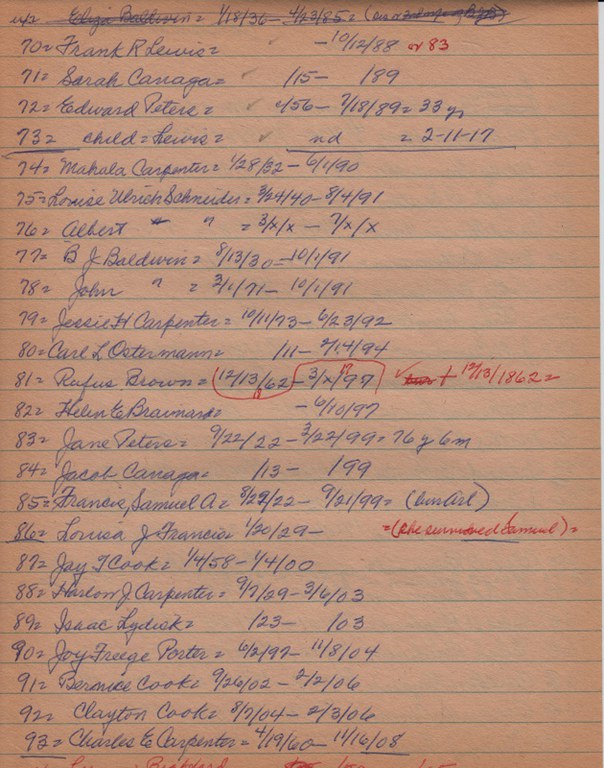 Eliza Baldwin = 1/18/36 - 4/23/85 =
70 = Frank R Lewis = - 10/12/88 or 83
71 = Sarah Canaga = ✓ /15 - /89
72 = Edward Peters = ✓ /56 - 7/18/89 = 33 y
73 = child = Lewis = ✓ nd = 2-11-17
74 = Mahala Carpenter = 1/28/32 - 6/1/90
75 = Louise Ulrich Schneider = 3/24/40 - 8/4/91
76 = Albert " " = 3/x/x - 7/x/x
77 = B J Baldwin = 8/13/30 - 10/1/91
78 = John " = 3/1/71 - 10/1/91
79 = Jessie H Carpenter = 10/11/73 - 6/23/92
80 = Carl L Ostermann = /11 - 2/14/94
81 = Rufus Brown = (12/13/62 - 3/x/97 ✓ + 12/13/1862 =
82 = Helen E Brainard = - 6/10/97
83 = Jane Peters = 9/22/22 - 3/22/99 = 76 y 6 m
84 = Jacob Canaga = /13 - /99
85 = Francis, Samuel A = 8/29/22 - 9/21/99 = (bur Arl)
86 = Louisa J Francis = 1/20/29 - = (she survived Samuel) =
87 = Jay T Cook = 1/4/58 - 1/4/00
88 = Harlon J Carpenter = 9/7/29 - 3/6/03
89 = Isaac Lydick = /23 - /03
90 = Joy Freege Porter = 6/2/97 - 11/8/04
91 = Bernice Cook = 9/26/02 - 2/2/06
92 = Clayton Cook = 8/7/04 - 2/3/06
93 = Charles E Carpenter = 4/19/60 - 11/16/08